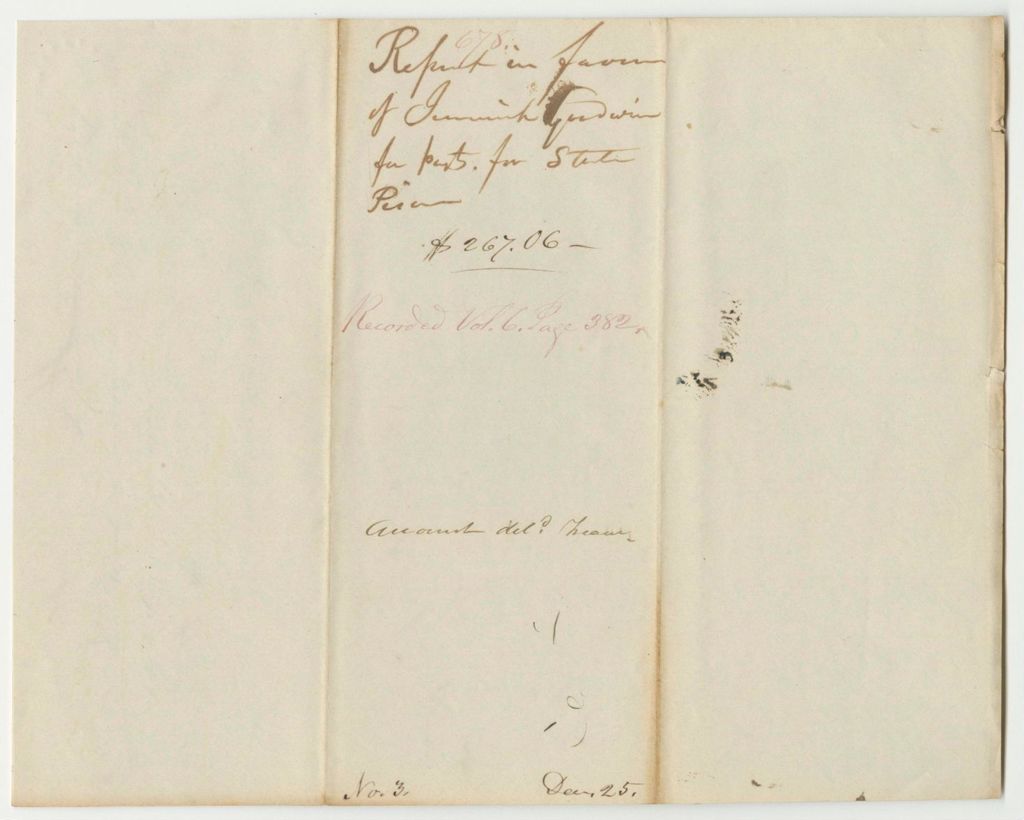 678.
Report in favour
of Jeremiah Goodwin
for parts. for State
Prison
$267.06 —
Recorded Vol. 6. Page 382
Account del.d Treasr
No. 3. Dec. 25.